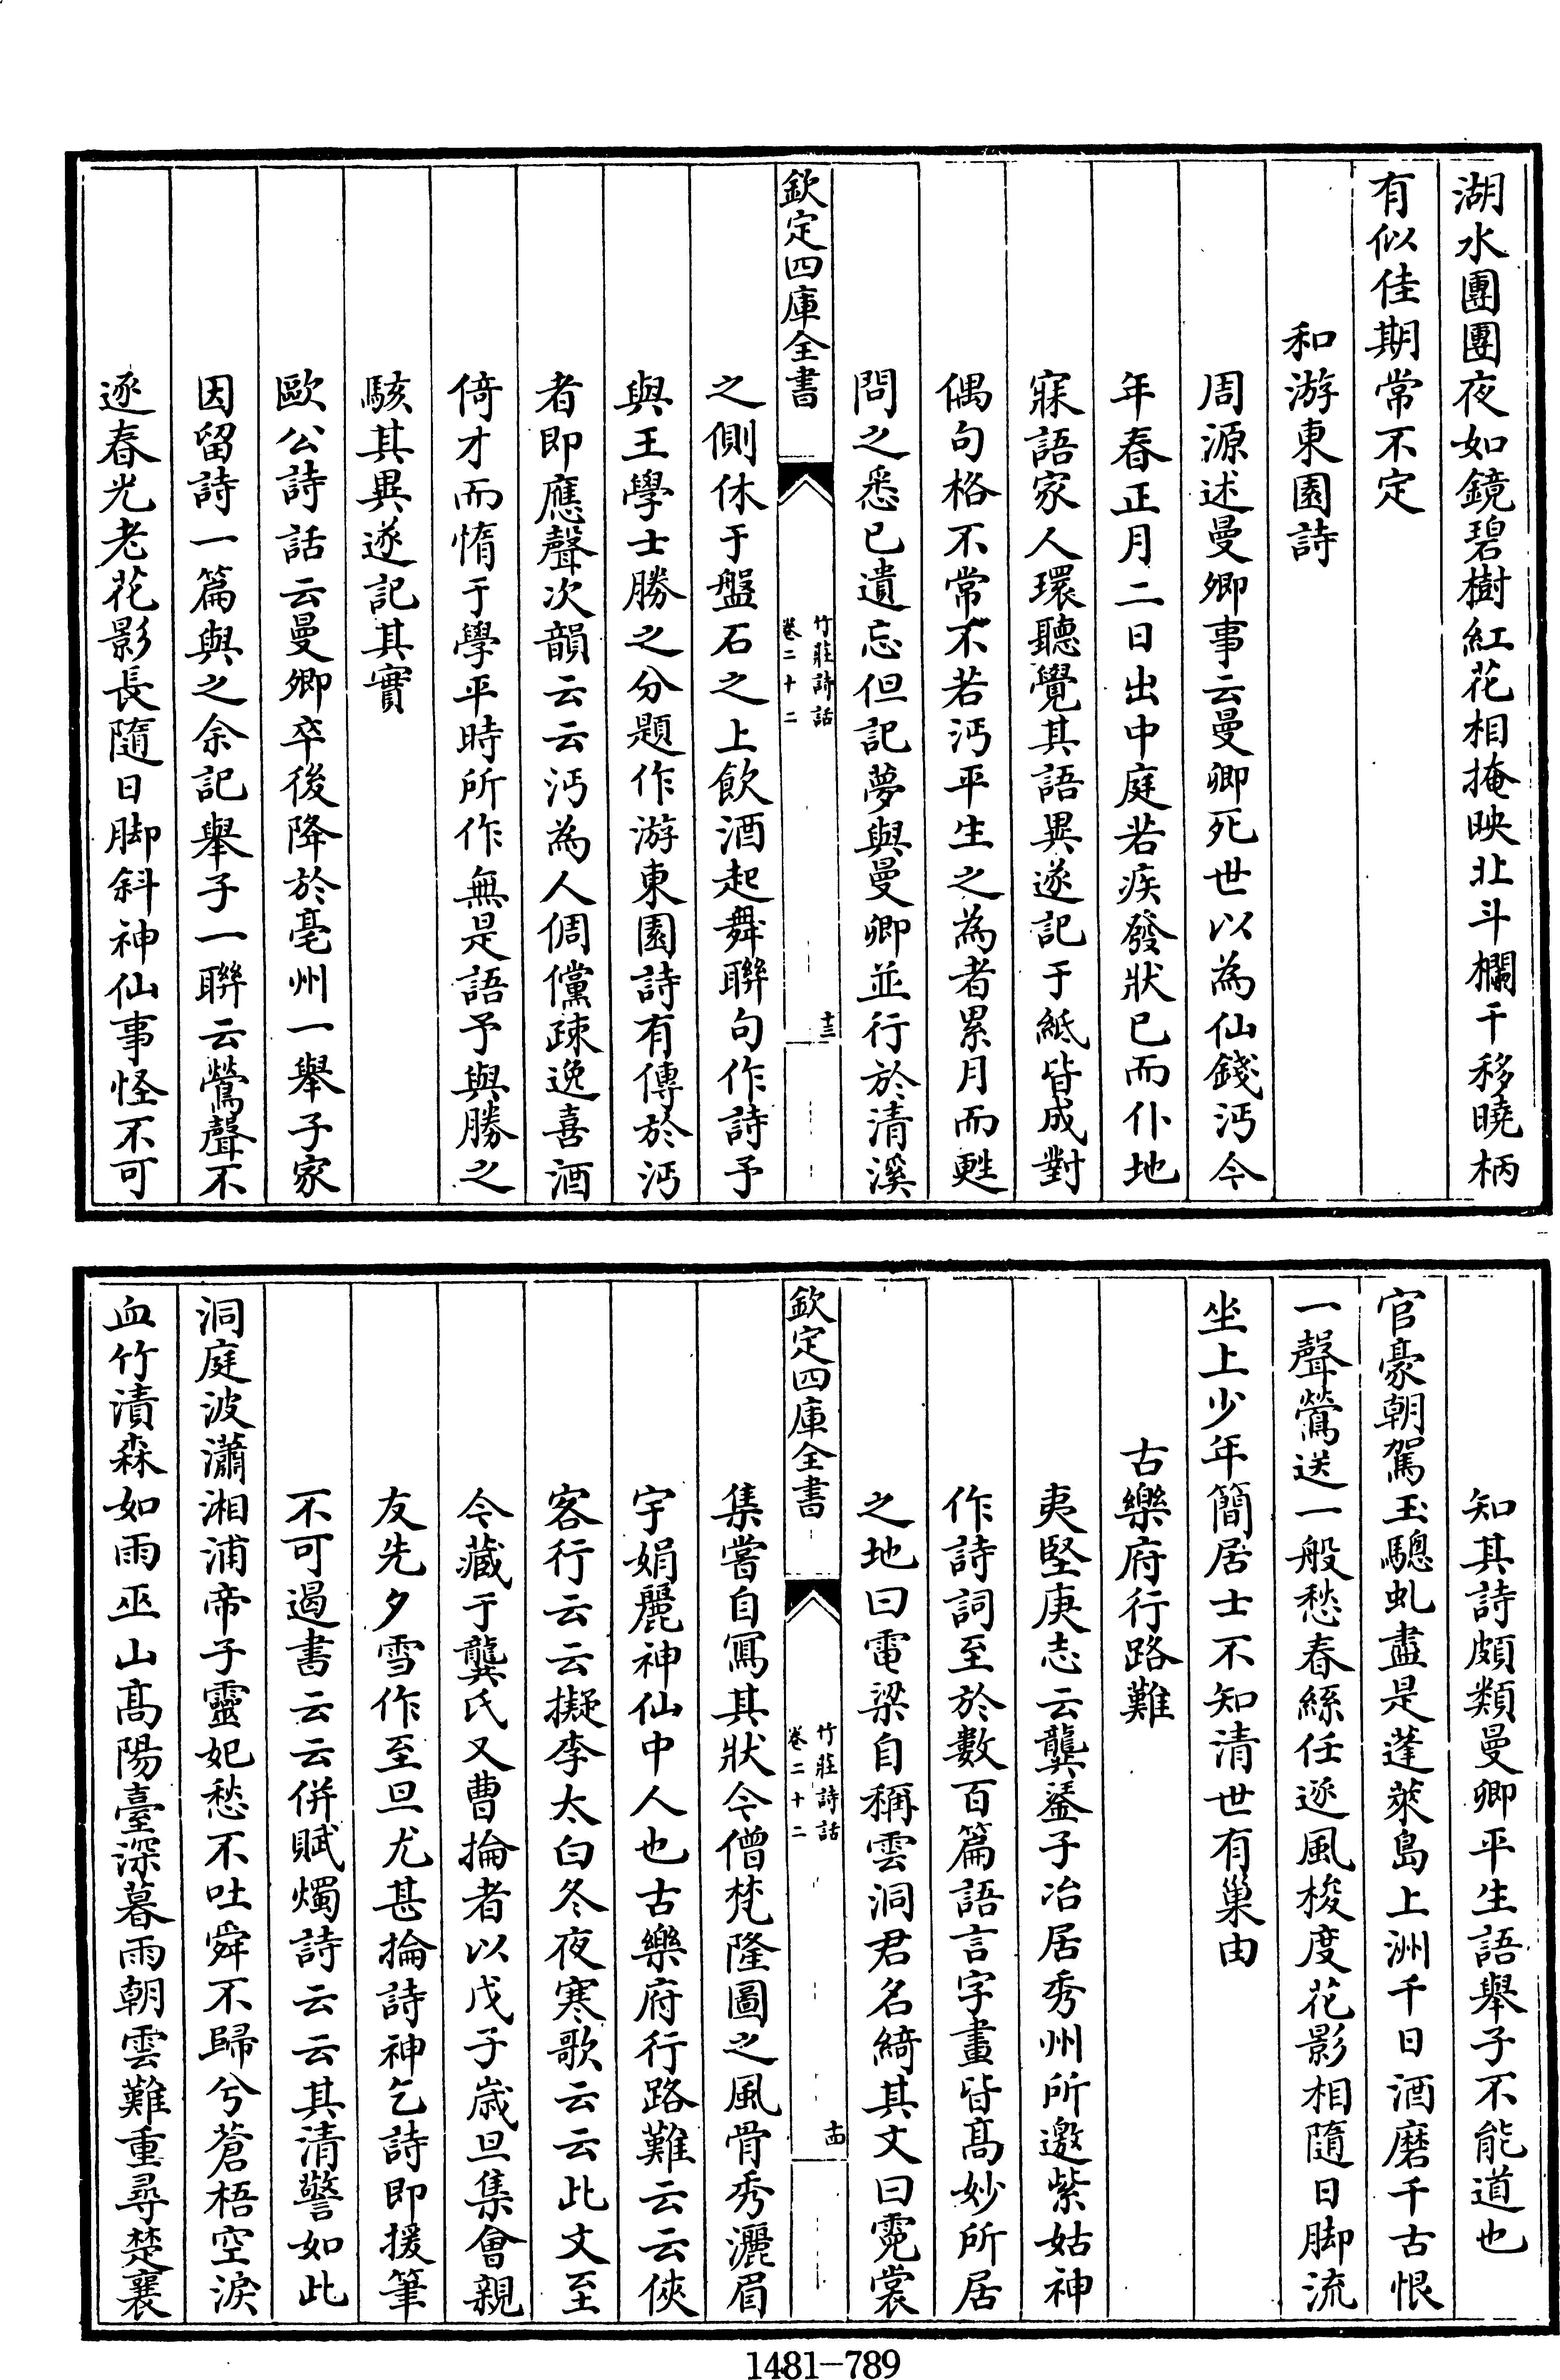 湖水團團夜如鏡碧樹紅花相掩映北斗欄干移曉柄
有似佳期常不定
和游東園詩
周源述曼卿事云曼卿死世以為仙錢沔今
年春正月二日出中庭若疾發狀已而仆地
寐語家人環聽覺其語異遂記于紙皆成對
偶句格不常不若沔平生之為者累月而甦
問之悉已遺忘但記夢與曼卿並行於清溪
欽定四庫全書
竹莊詩話
卷二十二
十三
之側休于盤石之上飲酒起舞聯句作詩予
與王學士勝之分題作游東園詩有傳於沔
者即應聲次韻云云沔為人倜儻疎逸喜酒
倚才而惰于學平時所作無是語予與勝之
駭其異遂記其實
歐公詩話云曼卿卒後降於亳州一舉子家
因留詩一篇與之余記舉子一聯云鶯聲不
逐春光老花影長隨日脚斜神仙事怪不可
知其詩頗類曼卿平生語舉子不能道也
官豪朝駕玉驄虬盡是蓬萊島上洲千日酒磨千古恨
一聲鶯送一般愁春絲任逐風梭度花影相隨日脚流
坐上少年簡居士不知清世有巢由
古樂府行路難
夷堅庚志云龔蓋子冶居秀州所邀紫姑神
作詩詞至於數百篇語言字畫皆高妙所居
之地曰電梁自稱雲洞君名綺其文曰霓裳
欽定四庫全書
竹莊詩話
卷二十二
十四
集嘗自寫其狀令僧梵隆圖之風骨秀灑眉
宇娟麗神仙中人也古樂府行路難云云俠
客行云云擬李太白冬夜寒歌云云此文至
今藏于龔氏又曹掄者以戊子歲旦集會親
友先夕雪作至旦尤甚掄詩神乞詩即援筆
不可遏書云云併賦燭詩云云其清警如此
洞庭波瀟湘浦帝子靈妃愁不吐舜不歸兮蒼梧空淚
血竹漬森如雨巫山高陽臺深暮雨朝雲難重尋楚襄
1481-789